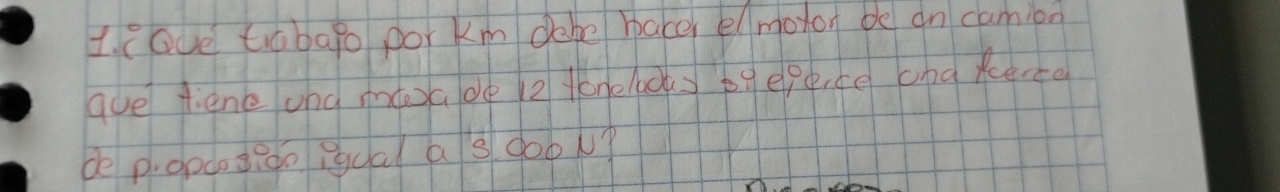 1. ¿Qué trabajo por Km debe hacer el motor de un camion
que tiene una masa de 12 toneladas ejerce una fuerza
de propocsión igual a 8 000 N?